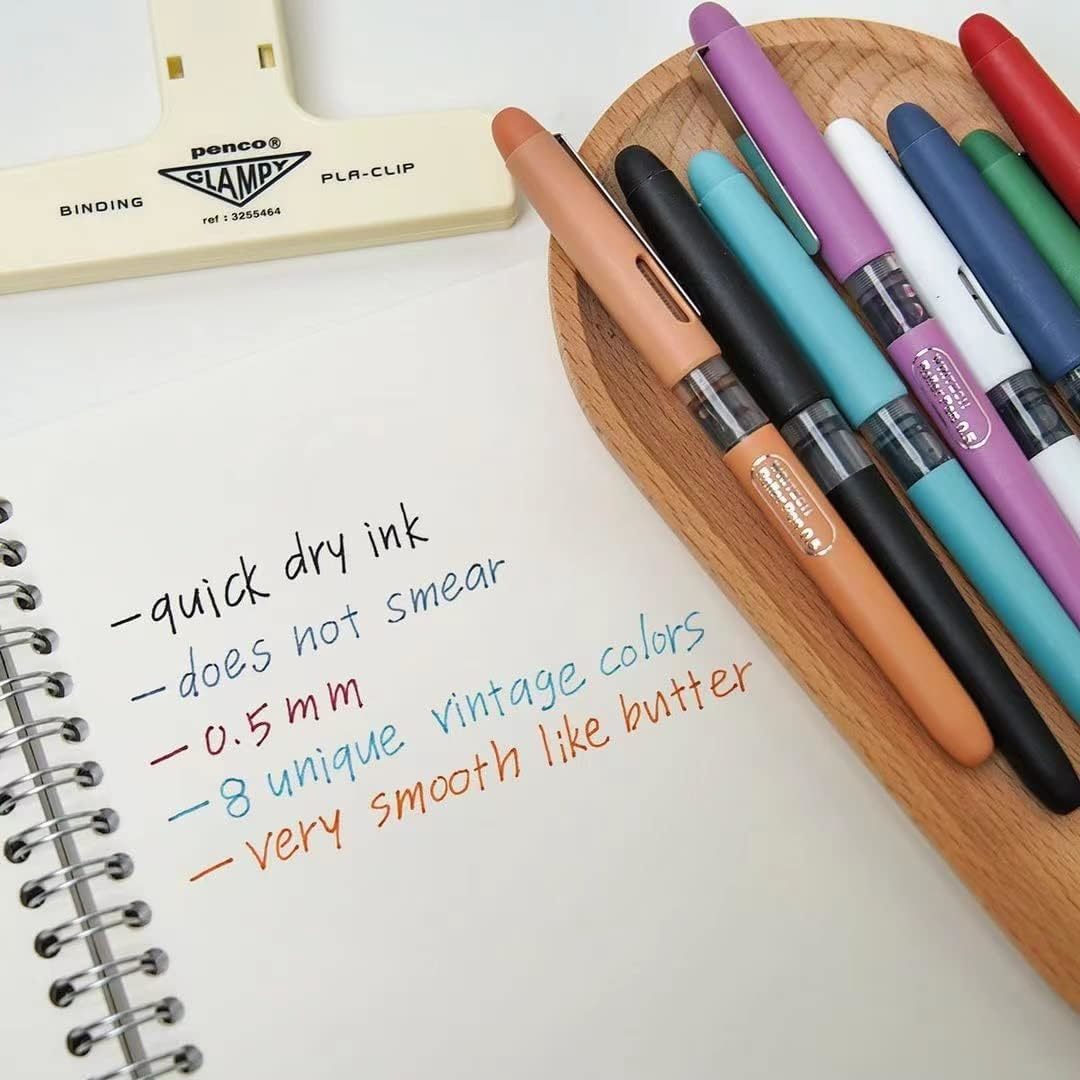 penco®
CLAMPY
BINDING
PLA-CLIP
ref : 3255464
–quick dry ink
–does not smear
–0.5mm
–8 unique vintage colors
–very smooth like butter